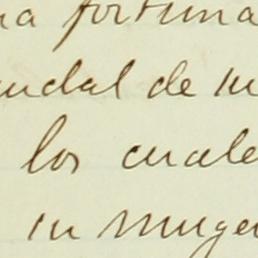 na fortuna
audal de su
los cuale
su muger